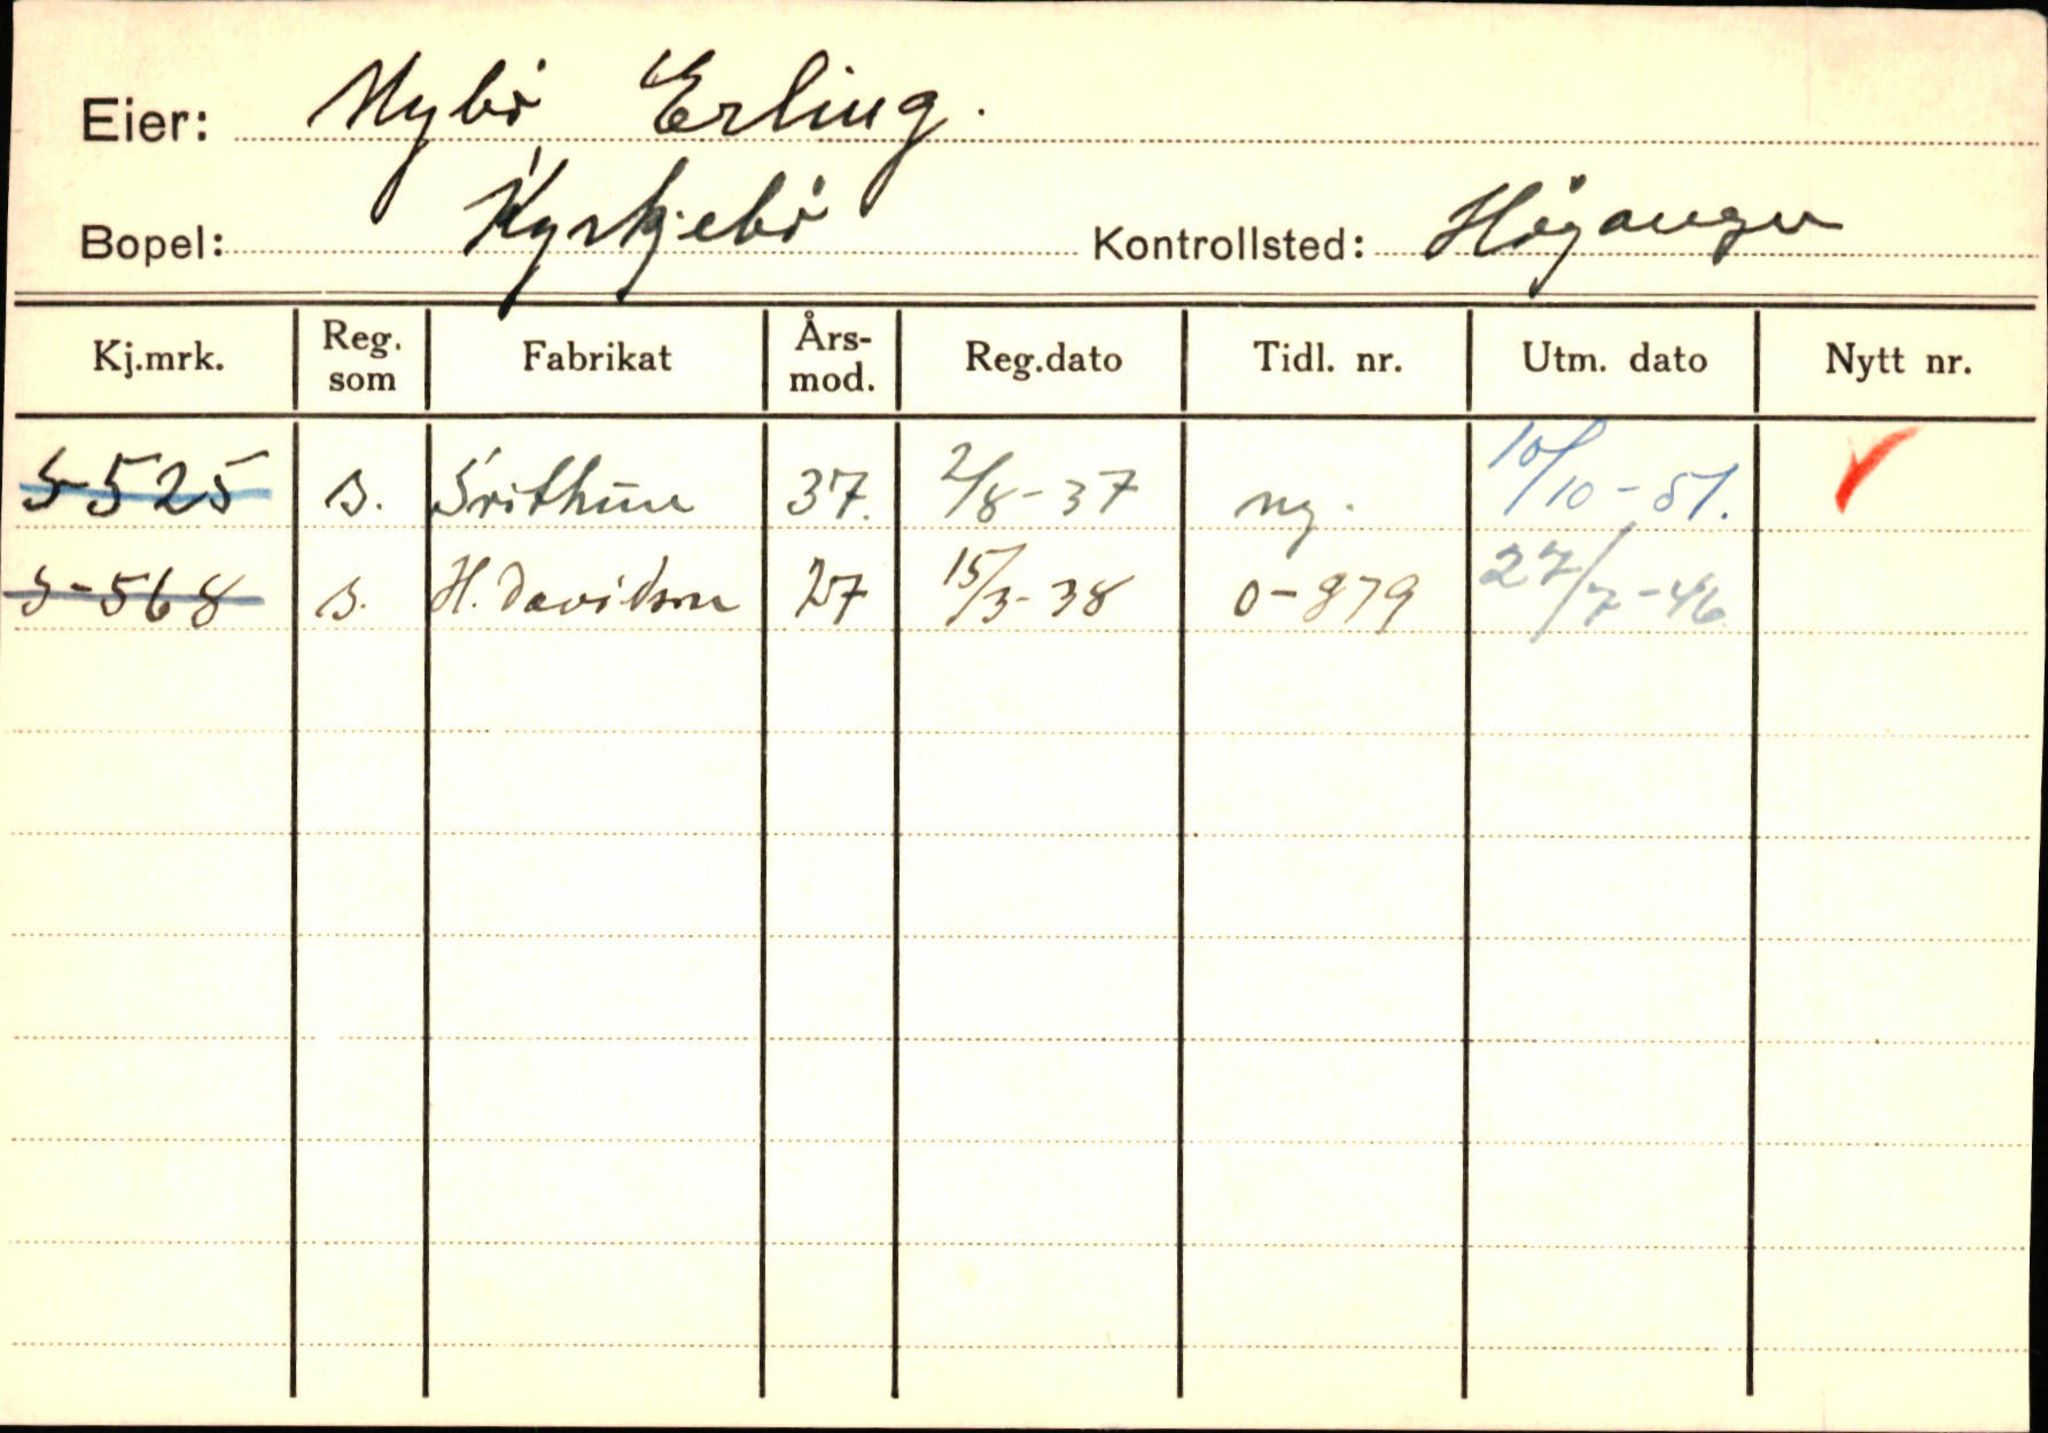 Eier: Nybö Erling.
Bopel: Kyrkjebö Kontrollsted: Höganger
Kj.mrk. Reg. som Fabrikat Års-mod. Reg.dato Tidl. nr. Utm. dato Nytt nr.
S-525 s. 37. 2/8-37 ny. 10/10-51.
S-568 s. H. Davidson 27 15/3-38 0-879 27/7-46